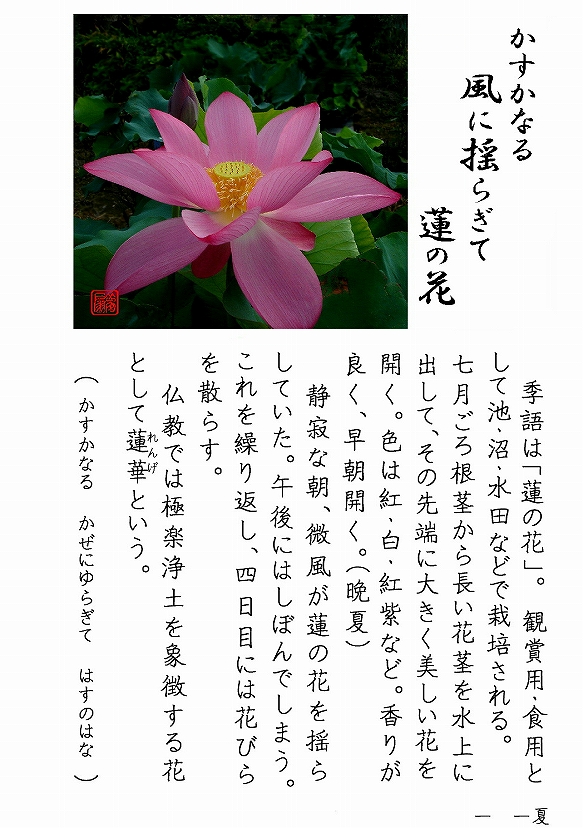 かすかなる
風に揺らぎて
蓮の花
季語は「蓮の花」。観賞用・食用と
して池・沼・水田などで栽培される。
七月ごろ根茎から長い花茎を水上に
出して、その先端に大きく美しい花を
開く。色は紅・白・紅紫など。香りが
良く、早朝開く。(晩夏)
静寂な朝、微風が蓮の花を揺ら
していた。午後にはしぼんでしまう。
これを繰り返し、四日目には花びら
を散らす。
仏教では極楽浄土を象徴する花
として蓮華という。
れんげ
(かすかなる かぜにゆらぎて はすのはな)
夏一 一